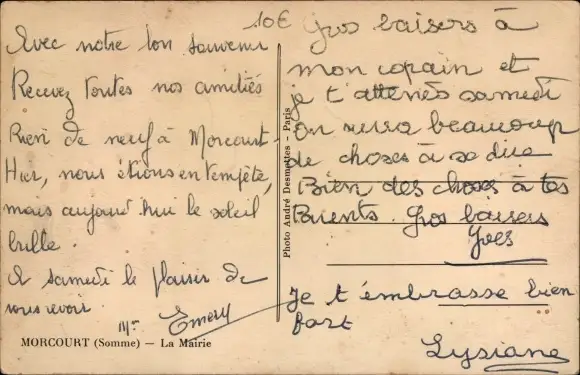 10€
Avec notre bon souvenir
Recevez toutes nos amitiés
Rien de neuf à Morcourt.
Hier, nous étions en tempête,
mais aujourd'hui le soleil
brille.
A samedi le plaisir de
vous revoir.
Mme Emery
MORCOURT (Somme) — La Mairie
Photo André Desmettes - Paris
Gros baisers à
mon copain et
je t'attends samedi
on aura beaucoup
de choses à se dire
Bien des choses à tes
Parents. Gros baisers
Yves
Je t'embrasse bien
fort
Lysiane